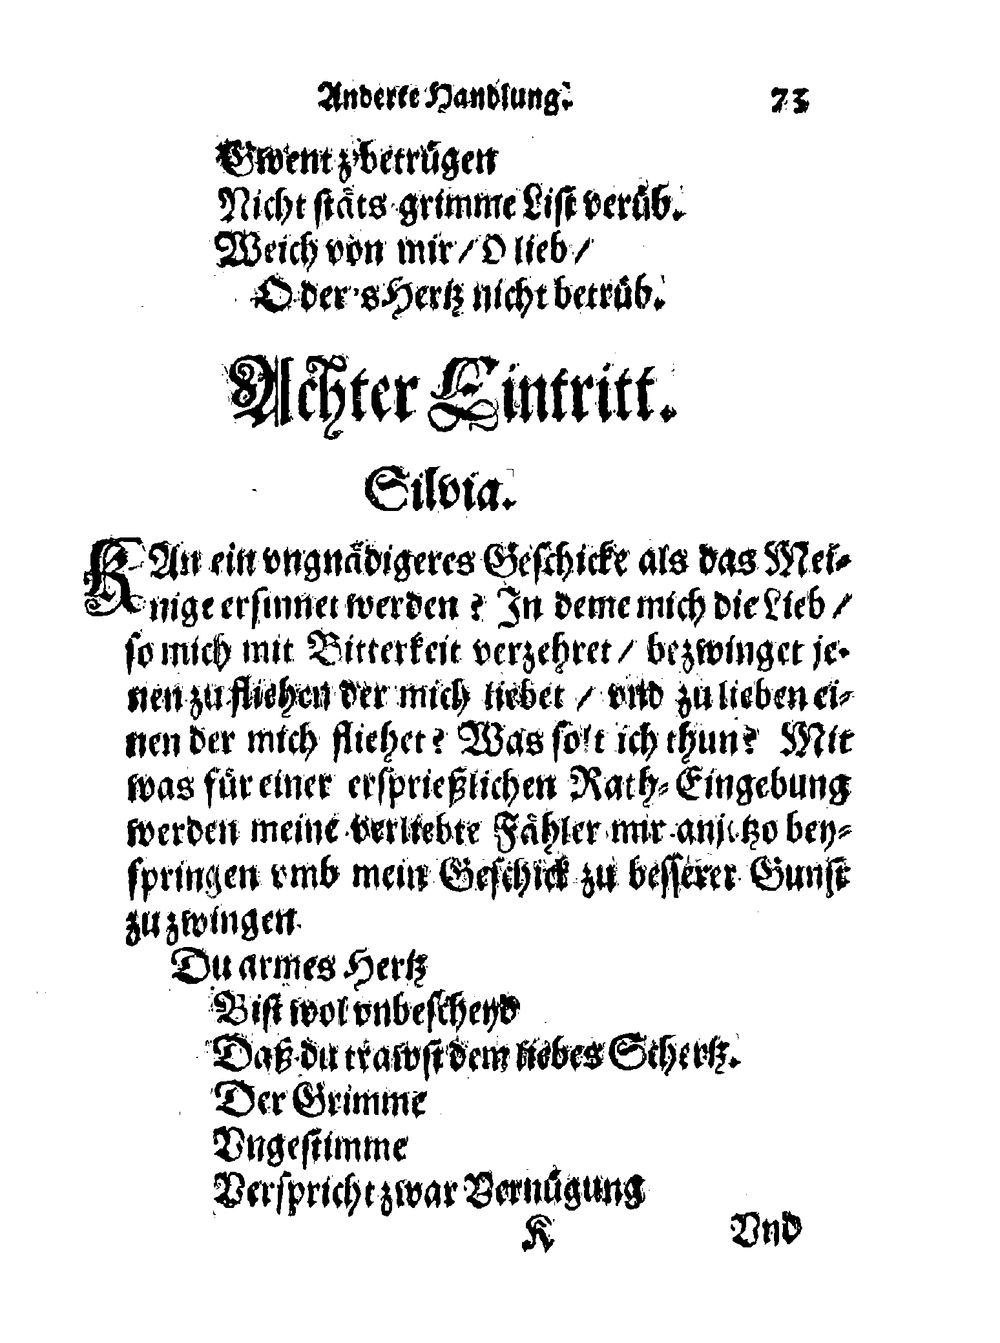 Anderte Handlung. 73
Ewent z'betrügen
Nicht stäts grimme List verüb.
Weich von mir / O lieb /
Oder's Hertz nicht betrüb.
Achter Eintritt.
Silvia.
KAn ein vngnädigeres Geschicke als das Mei-
nige ersinnet werden? In deme mich die Lieb /
so mich mit Bitterkeit verzehret / bezwinget je-
nen zu fliehen der mich liebet / vnd zu lieben ei-
nen der mich fliehet? Was solt ich thun? Mit
was für einer ersprießlichen Rath-Eingebung
werden meine verliebte Fähler mir anjetzo bey-
springen vmb mein Geschick zu besserer Gunst
zu zwingen.
Du armes Hertz
Bist wol vnbescheyd
Daß du trawst dem liebes Schertz.
Der Grimme
Vngestimme
Verspricht zwar Vernügung
K Vnd